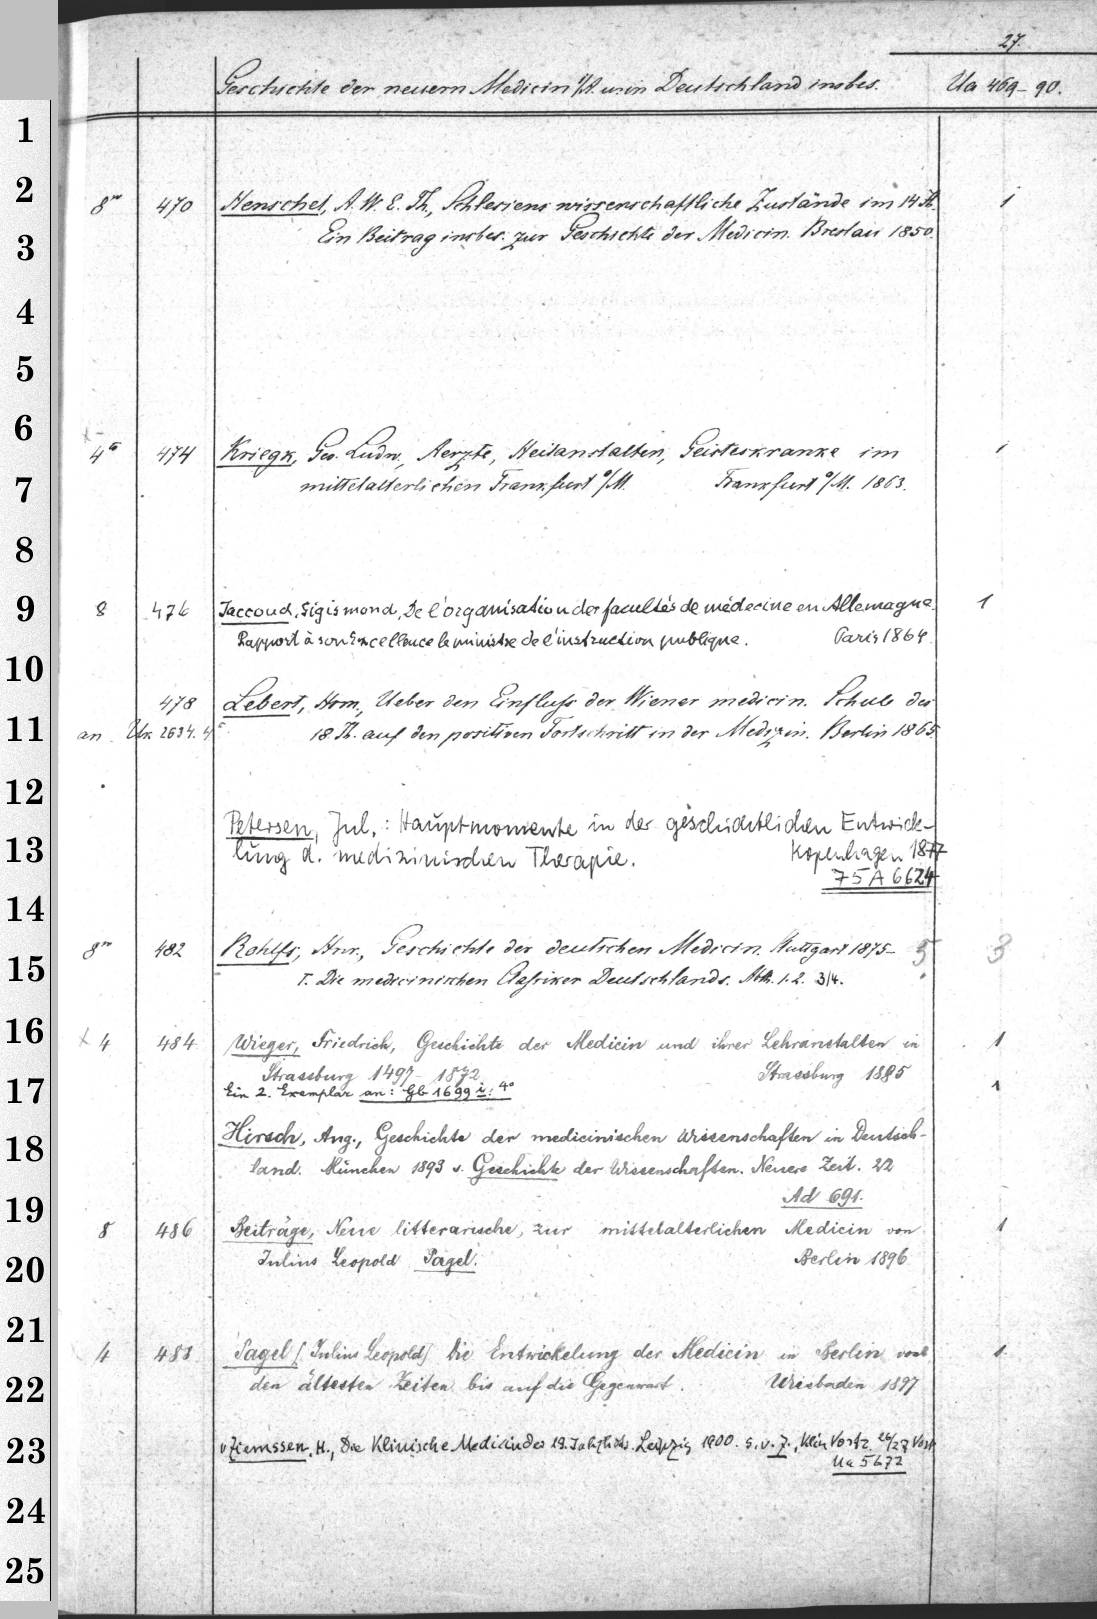 27.
Geschichte der neuern Medicin u. in Deutschland insbes. Ua 469-90.
8º 470 Henschel, A. W. E. Th., Schlesiens wissenschaftliche Zustände im 14 Jh. 1
Ein Beitrag insbes. zur Geschichte der Medicin. Breslau 1850.
4º 474 Kriegk, Geo. Ludw., Aerzte, Heilanstalten, Geisteskranke im 1
mittelalterlichen Frankfurt a/M. Frankfurt a/M. 1863.
8 476 Jaccoud, Sigismond, De l'organisation des facultés de médecine en Allemagne. 1
Rapport à son Excellence le ministre de l'instruction publique. Paris 1864.
478 Lebert, Hrm., Ueber den Einfluss der Wiener medicin. Schule des
an Uk 2634. 4º 18 Jh. auf den positiven Fortschritt in der Medizin. Berlin 1865
Petersen, Jul.: Hauptmomente in der geschichtlichen Entwick-
lung d. medizinischen Therapie. Kopenhagen 1877
75 A 6624
8º 482 Rohlfs, Hnr., Geschichte der deutschen Medicin. Stuttgart 1875- 5 3
I. Die medicinischen Classiker Deutschlands. Abth. 1. 2. 3/4.
x 4 484 Wieger, Friedrich, Geschichte der Medicin und ihrer Lehranstalten in 1
Strassburg 1497-1872 Strassburg 1885
Ein 2. Exemplar an: Gb 1699 i: 4º 1
Hirsch, Aug., Geschichte der medicinischen Wissenschaften in Deutsch-
land. München 1893 s. Geschichte der Wissenschaften. Neuere Zeit. 22
Ad 691.
8 486 Beiträge, Neue litterarische, zur mittelalterlichen Medicin von 1
Julius Leopold Pagel. Berlin 1896
4 488 Pagel [Julius Leopold] Die Entwickelung der Medicin in Berlin von 1
den ältesten Zeiten bis auf die Gegenwart. Wiesbaden 1897
v. Ziemssen, H., Die Klinische Medicin des 19. Jahrhdts. Leipzig 1900. s. v. Z., Klin. Vortr. 26/27 Vortr.
Ua 5672